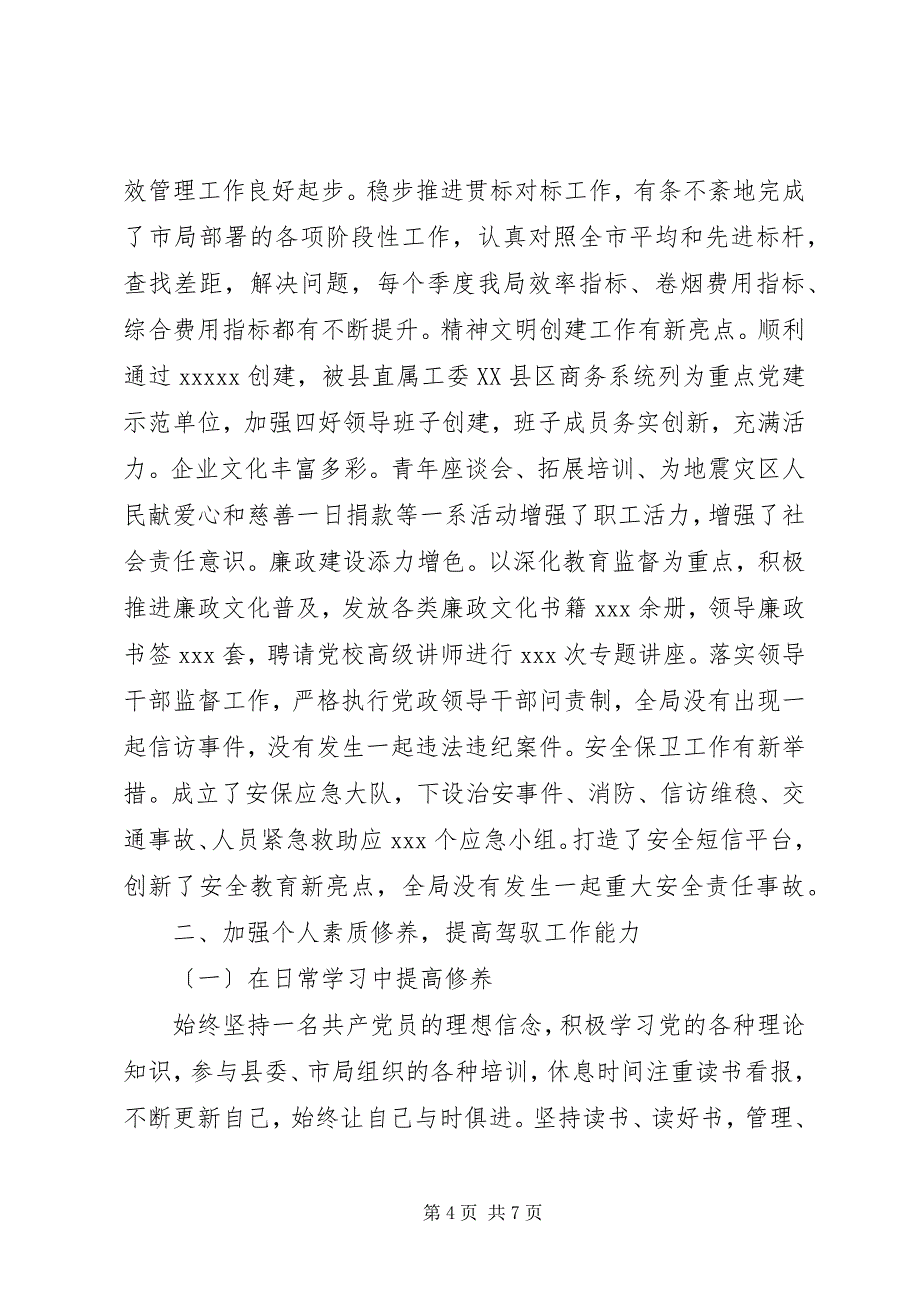 效管理工作良好起步。稳步推进贯标对标工作，有条不紊地完成
了市局部署的各项阶段性工作，认真对照全市平均和先进标杆，
查找差距，解决问题，每个季度我局效率指标、卷烟费用指标、
综合费用指标都有不断提升。精神文明创建工作有新亮点。顺利
通过 xxxxx 创建，被县直属工委 XX 县区商务系统列为重点党建
示范单位，加强四好领导班子创建，班子成员务实创新，充满活
力。企业文化丰富多彩。青年座谈会、拓展培训、为地震灾区人
民献爱心和慈善一日捐款等一系活动增强了职工活力，增强了社
会责任意识。廉政建设添力增色。以深化教育监督为重点，积极
推进廉政文化普及，发放各类廉政文化书籍 xxx 余册，领导廉政
书签 xxx 套，聘请党校高级讲师进行 xxx 次专题讲座。落实领导
干部监督工作，严格执行党政领导干部问责制，全局没有出现一
起信访事件，没有发生一起违法违纪案件。安全保卫工作有新举
措。成立了安保应急大队，下设治安事件、消防、信访维稳、交
通事故、人员紧急救助应 xxx 个应急小组。打造了安全短信平台，
创新了安全教育新亮点，全局没有发生一起重大安全责任事故。
二、加强个人素质修养，提高驾驭工作能力
〔一〕在日常学习中提高修养
始终坚持一名共产党员的理想信念，积极学习党的各种理论
知识，参与县委、市局组织的各种培训，休息时间注重读书看报，
不断更新自己，始终让自己与时俱进。坚持读书、读好书，管理、
第 4 页 共 7 页